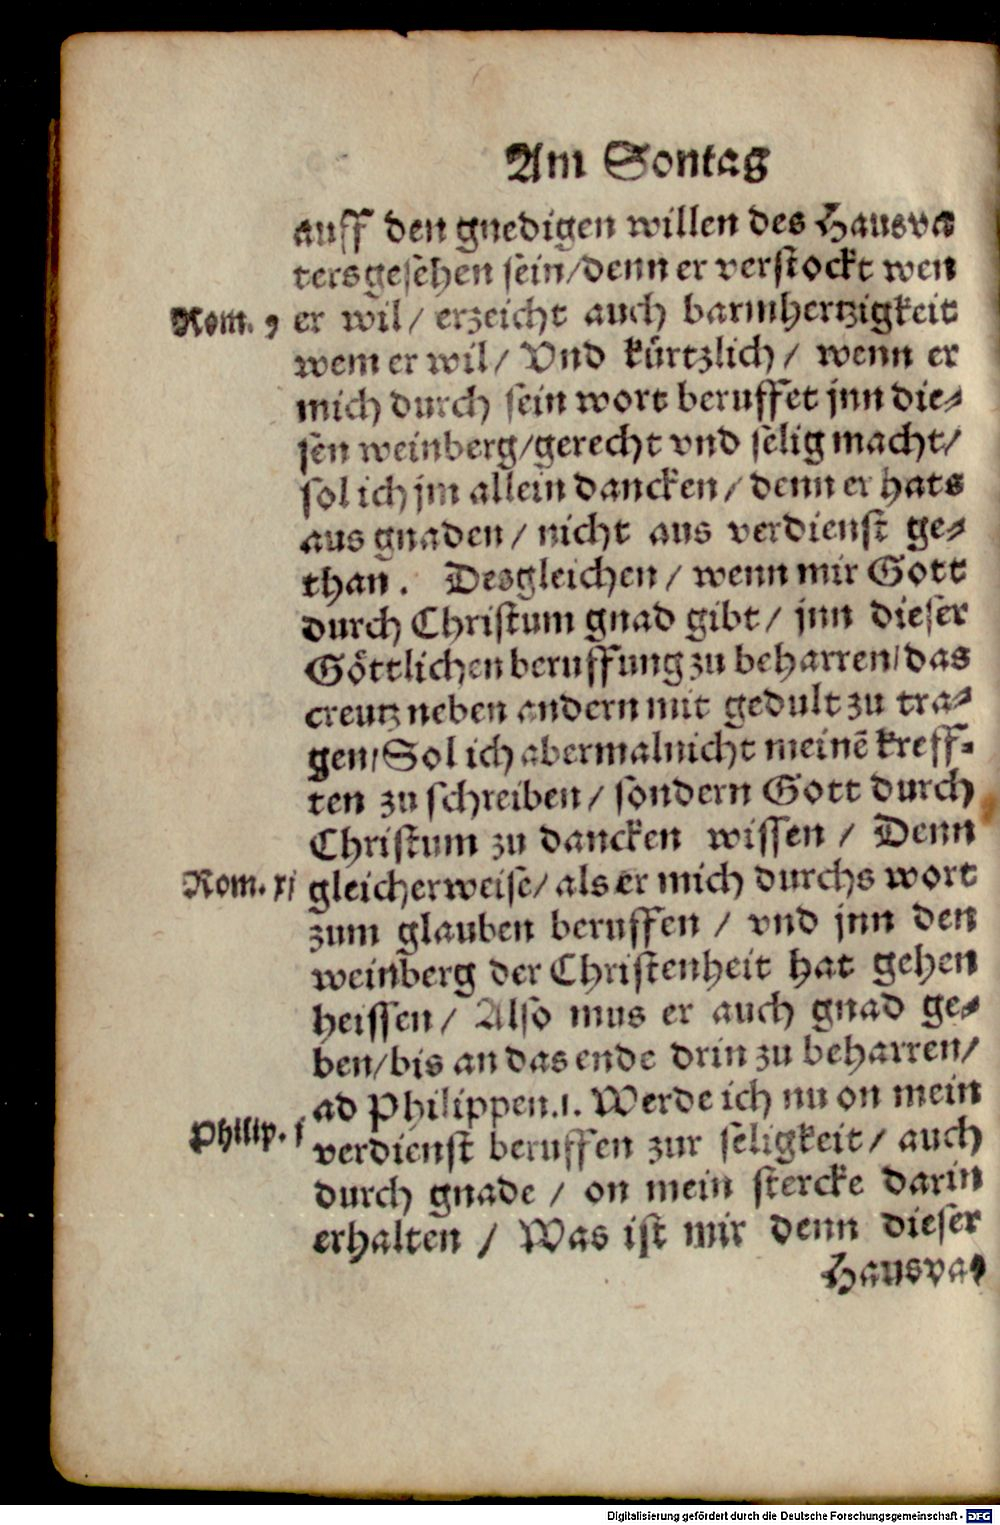 Am Sontag
auff den gnedigen willen des Hausva
ters gesehen sein/denn er verstockt wen
Rom. 9
er wil/ erzeicht auch barmhertzigkeit
wem er wil/ Vnd kürtzlich/ wenn er
mich durch sein wort beruffet jnn die⸗
sen weinberg/gerecht vnd selig macht/
sol ich jm allein dancken/ denn er hats
aus gnaden/ nicht aus verdienst ge⸗
than. Desgleichen/ wenn mir Gott
durch Christum gnad gibt/ jnn dieser
Göttlichen beruffung zu beharren/das
creutz neben andern mit gedult zu tra⸗
gen/Sol ich abermal nicht meinē kreff⸗
ten zu schreiben/ sondern Gott durch
Christum zu dancken wissen/ Denn
Rom. xj
gleicherweise/ als er mich durchs wort
zum glauben beruffen/ vnd jnn den
weinberg der Christenheit hat gehen
heissen/ Also mus er auch gnad ge⸗
ben/bis an das ende drin zu beharren/
ad Philippen.1. Werde ich nu on mein
Philip. j
verdienst beruffen zur seligkeit/ auch
durch gnade/ on mein stercke darin
erhalten/ Was ist mir denn dieser
Hausva⸗
Digitalisierung gefördert durch die Deutsche Forschungsgemeinschaft - DFG